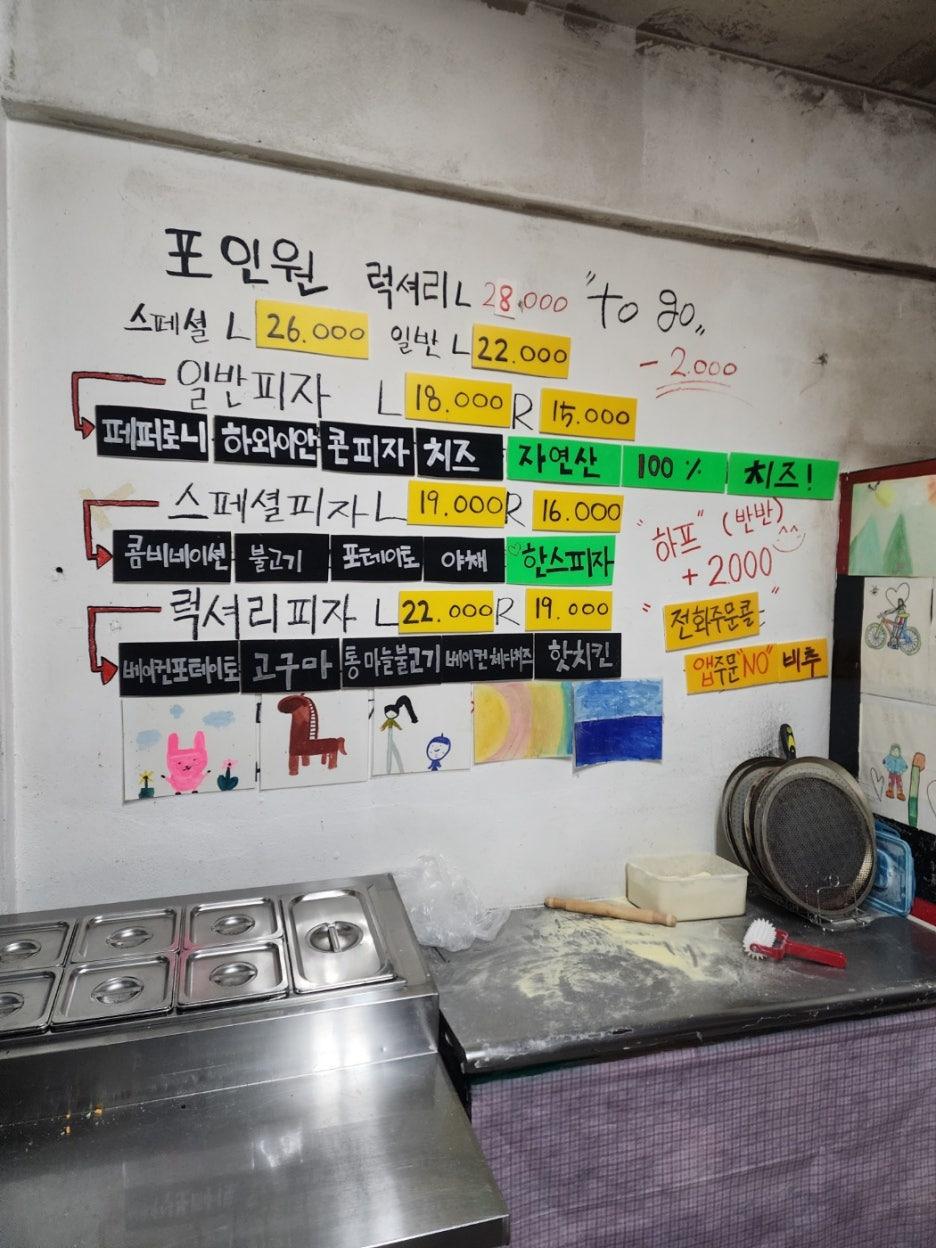 포인원 럭셔리 L 28.000 "to go"
스페셜 L 26.000 일반 L 22.000
- 2.000
일반피자 L 18.000 R 15.000
페퍼로니 하와이안 콘피자 치즈 자연산 100% 치즈!
스페셜피자 L 19.000 R 16.000
"하프" (반반) ^^
+ 2000
콤비네이션 불고기 포테이토 야채 ♡한스피자
럭셔리피자 L 22.000 R 19.000
"전화주문콜"
앱주문 "NO" 비추
베이컨포테이토 고구마 통마늘불고기 베이컨체다치즈 핫치킨